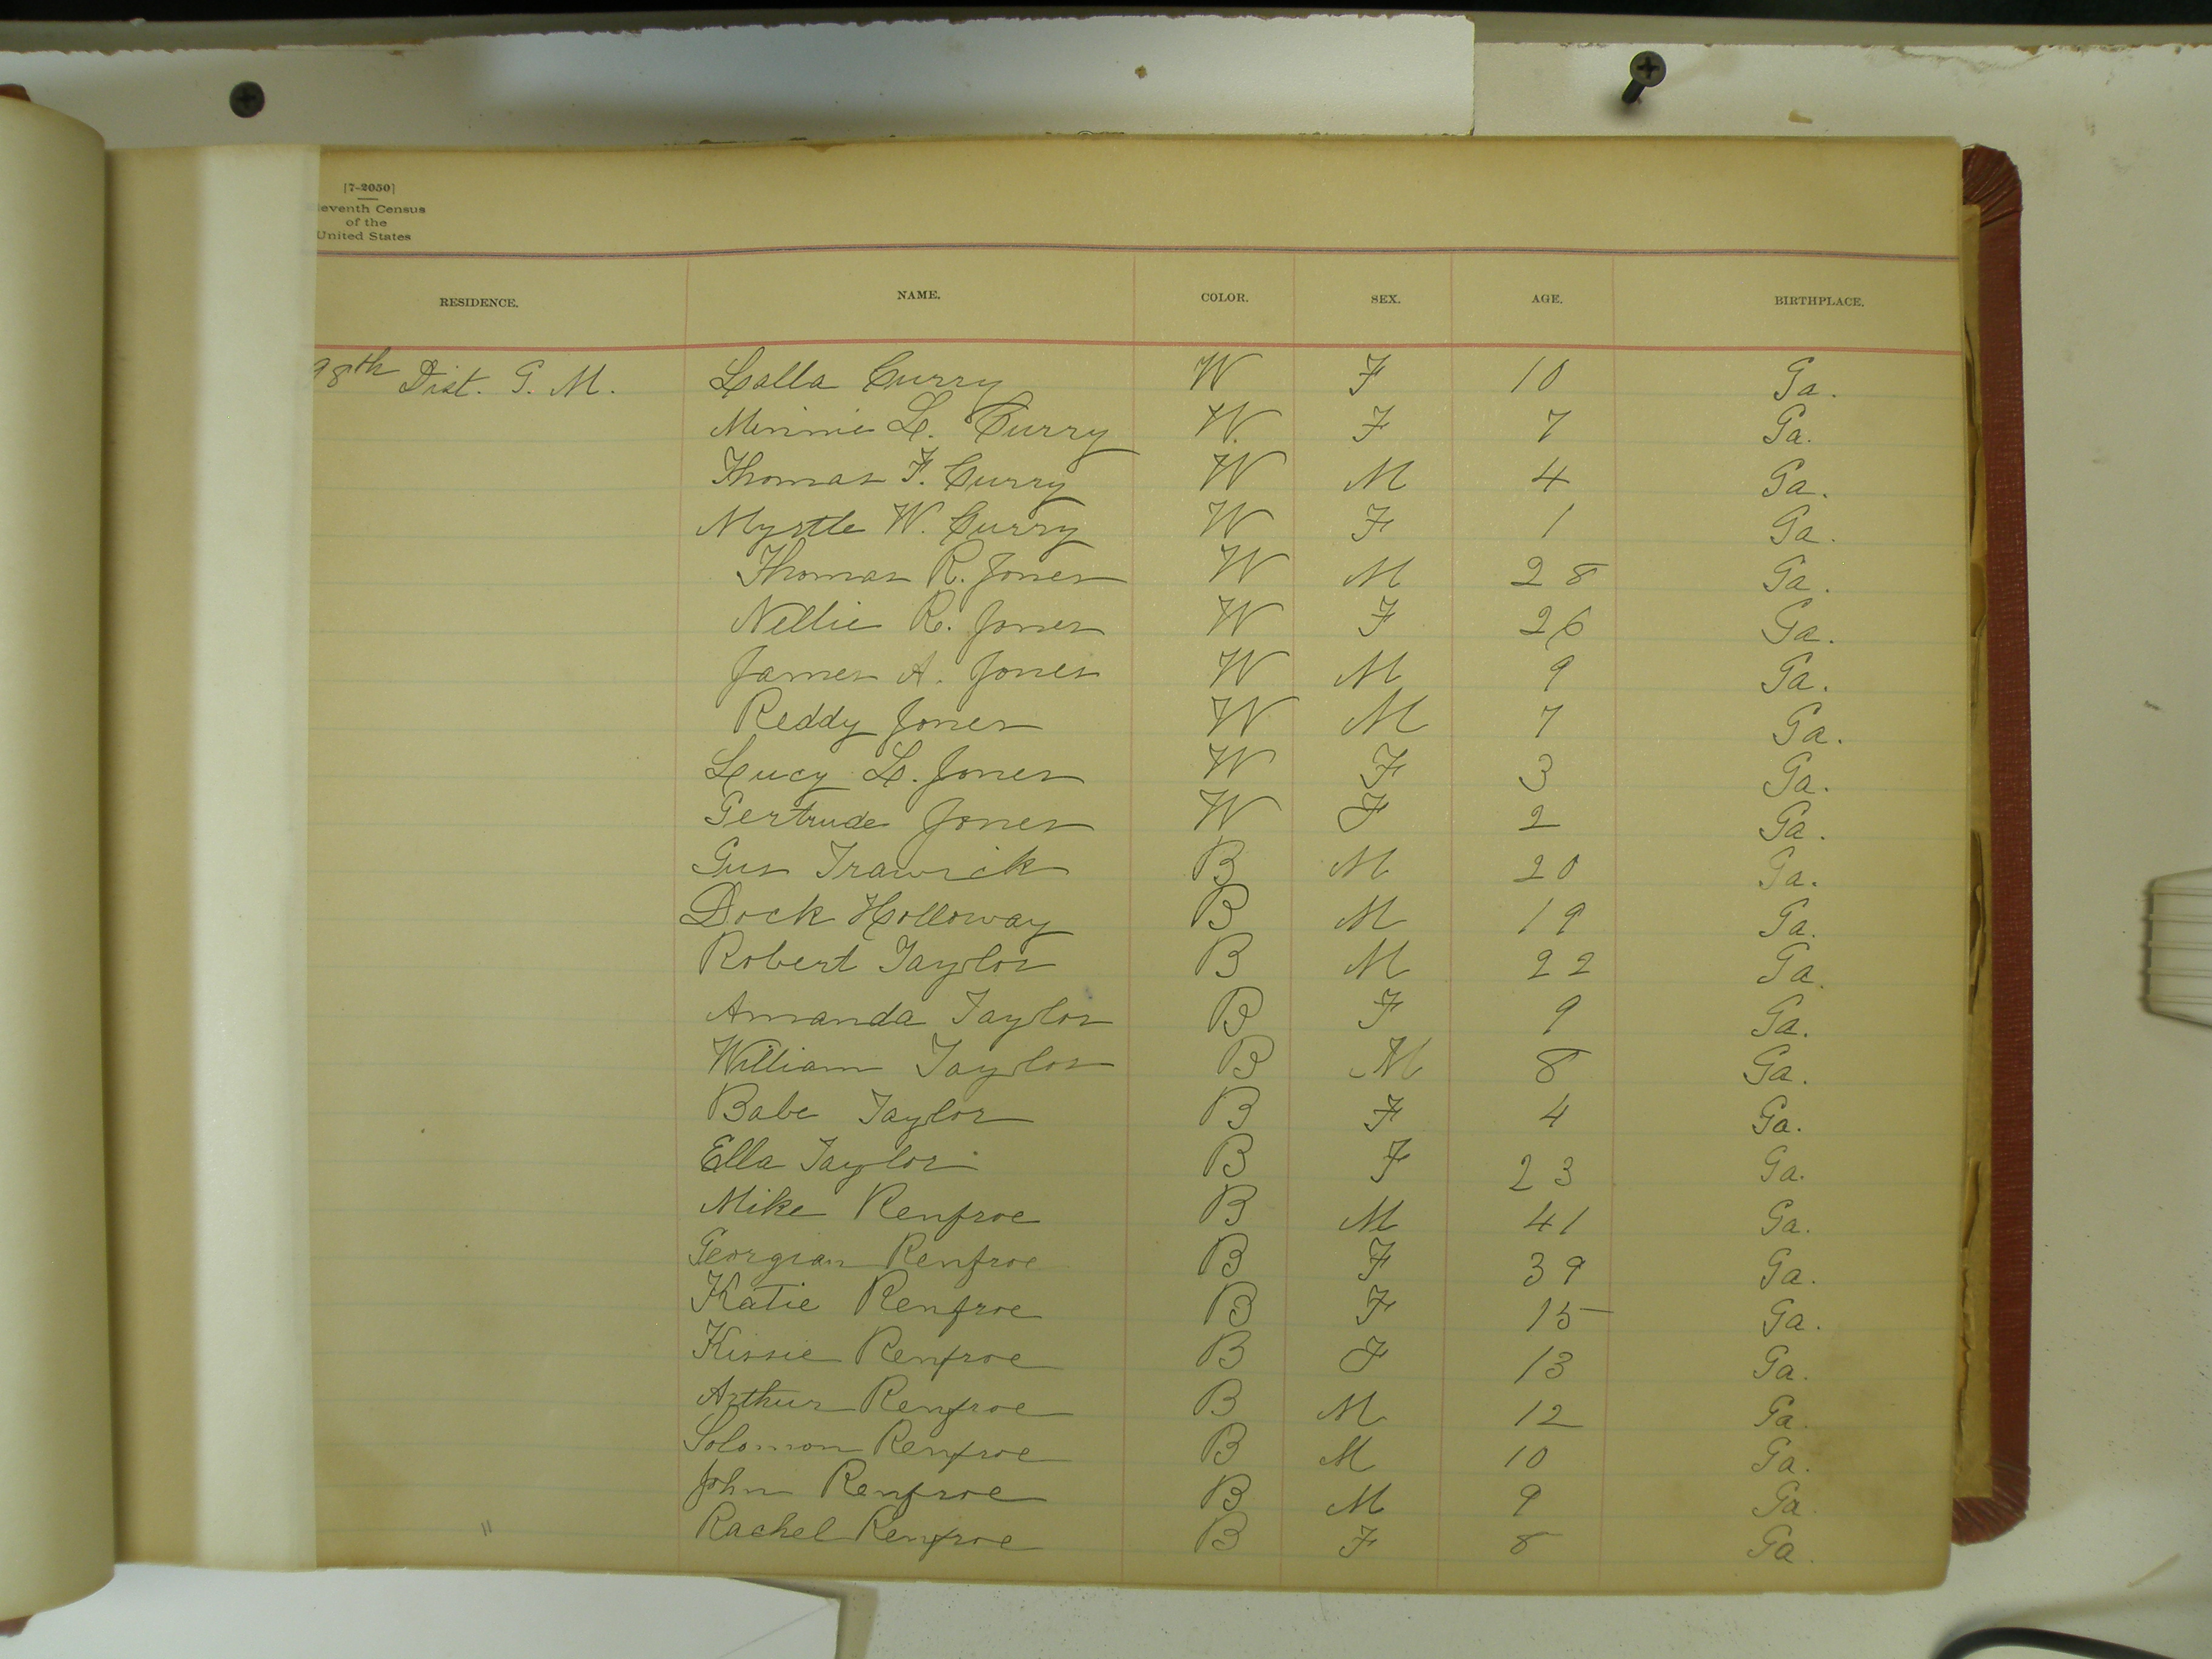 [7-2050]
leventh Census
of the
United States
RESIDENCE. NAME. COLOR. SEX. AGE. BIRTHPLACE.
98th Dist. G. M. Lalla Curry W F 10 Ga.
Minnie L. Curry W. F 7 Ga.
Thomas F. Curry W M 4 Ga.
Myrtle W. Curry W F 1 Ga.
Thomas R. Jones W M 28 Ga.
Nellie R. Jones W F 26 Ga.
James A. Jones W M 9 Ga.
Reddy Jones W M 7 Ga.
Lucy L. Jones W F 3 Ga.
Gertrude Jones W F 2 Ga.
Gus Trawick B M 20 Ga.
Dock Holloway B M 19 Ga.
Robert Taylor B M 22 Ga.
Amanda Taylor B F 9 Ga.
William Taylor B M 8 Ga.
Babe Taylor B F 4 Ga.
Ella Taylor B F 23 Ga.
Mike Renfroe B M 41 Ga.
Georgian Renfroe B F 39 Ga.
Katie Renfroe B F 15 Ga.
Kissie Renfroe B F 13 Ga.
Arthur Renfroe B M 12 Ga.
Solomon Renfroe B M 10 Ga.
John Renfroe B M 9 Ga.
" Rachel Renfroe B F 8 Ga.